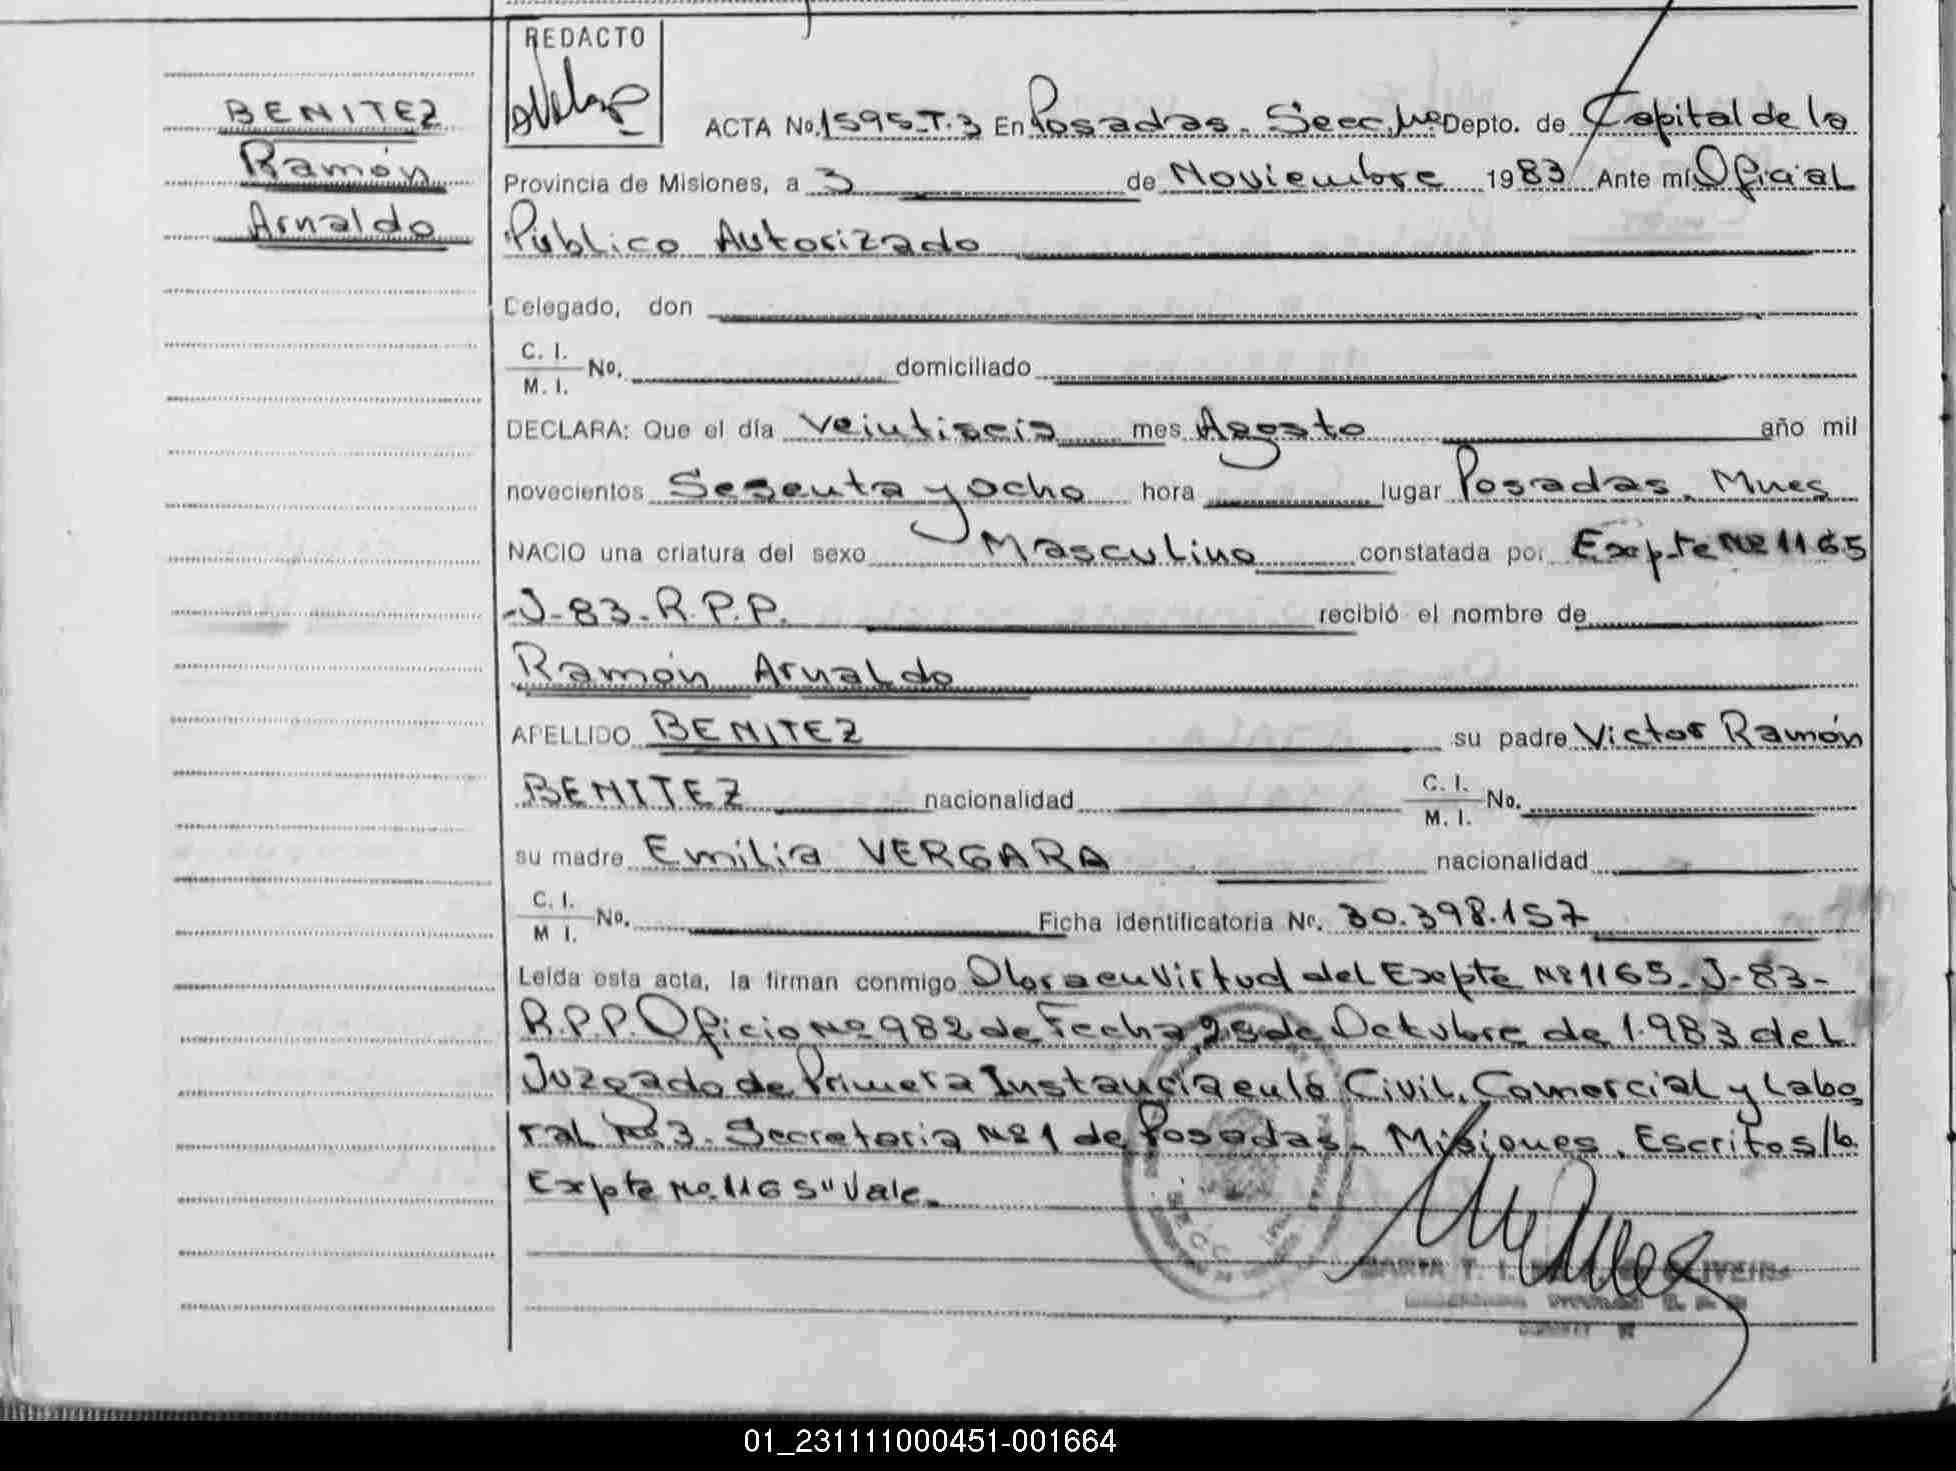 REDACTO
BENITEZ
Ramón
Arnaldo
ACTA No. 1595-T.3 En Posadas. Secc. Depto. de Capital de la
Provincia de Misiones, a 3 de Noviembre 1983 Ante mí Oficial
Público Autorizado
Delegado, don
C. I.
M. I. No. domiciliado
DECLARA: Que el día veintiseis mes Agosto año mil
novecientos Sesenta y ocho hora lugar Posadas. Mnes
NACIO una criatura del sexo Masculino constatada por Expte Nº 1165
-J-83-R.P.P. recibió el nombre de
Ramón Arnaldo
APELLIDO BENITEZ su padre Victor Ramón
BENITEZ nacionalidad C. I.
M. I. No.
su madre Emilia VERGARA nacionalidad
C. I.
M I. No. Ficha identificatoria Nº. 30.398.157
Leída esta acta, la firman conmigo Obra en Virtud del Exepte Nº 1165-J-83-
R.P.P. Oficio Nº 982 de Fecha de Octubre de 1.983 del
Juzgado de Primera Instancia en lo Civil, Comercial y Labo
ral Nº 3. Secretaria Nº 1 de Posadas. Misiones. Escrito s/b.
Expte Nº. 1165" Vale.
MARIA T. I.
01_231111000451-001664